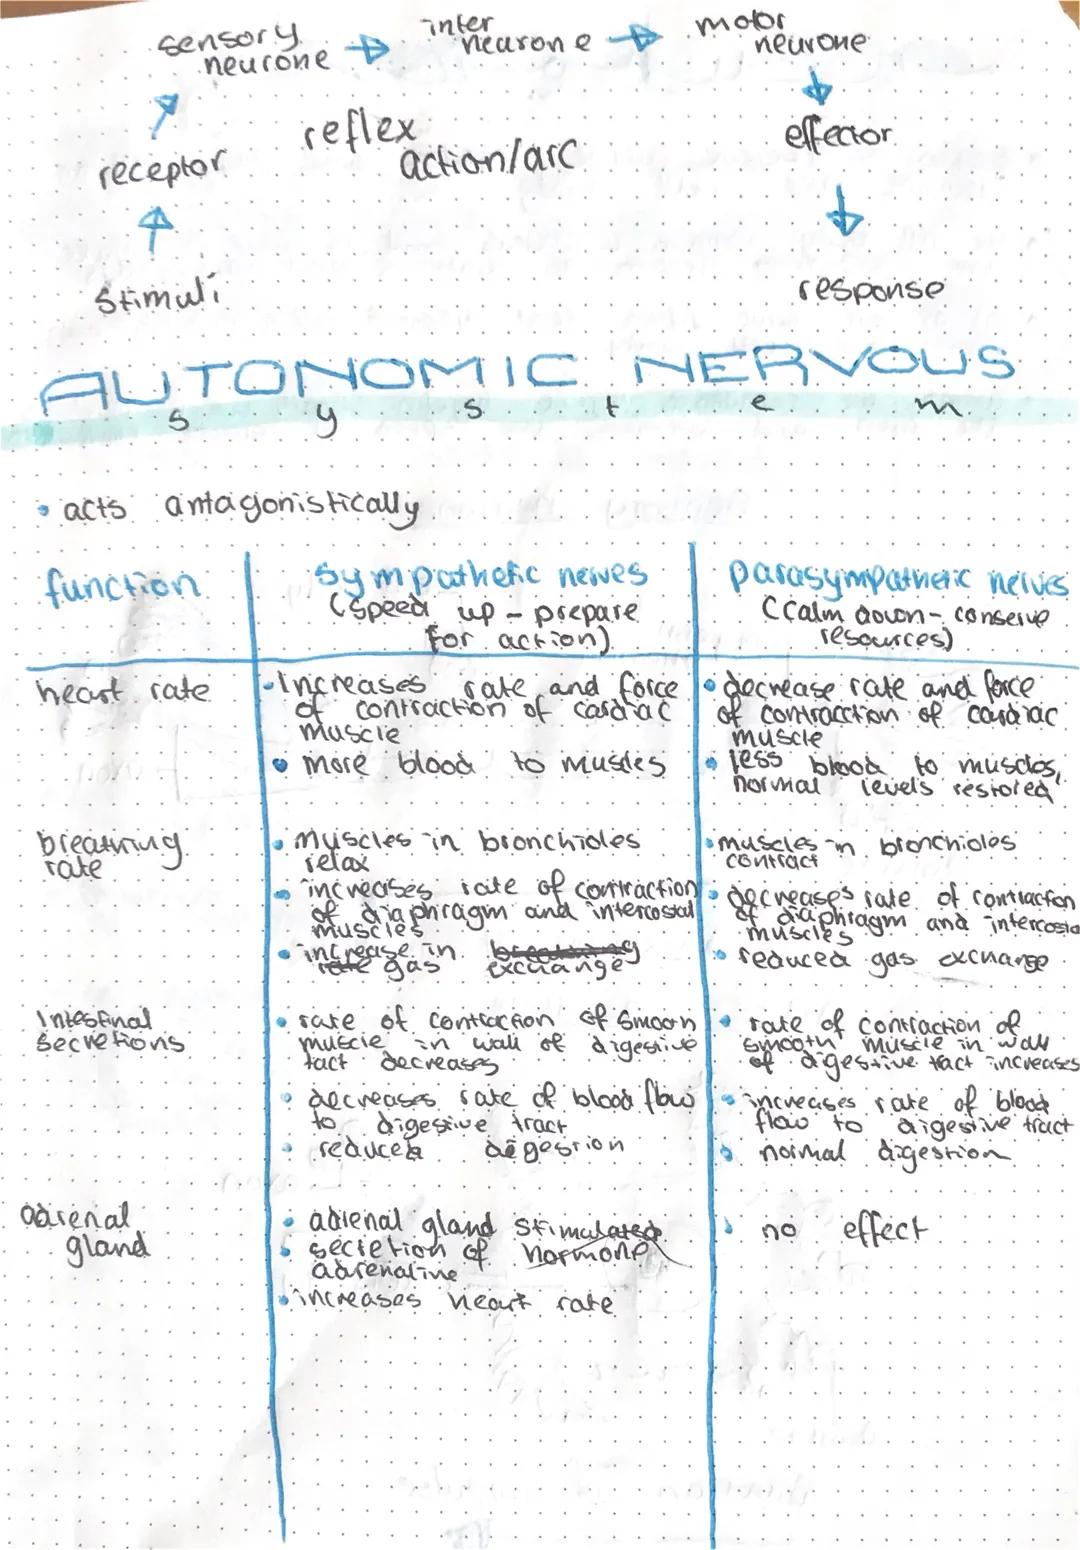 sensory
neurone
inter
neurone
motor
neurone
reflex
action/arc
effector
receptor
stimuli
response
AUTONOMIC NERVOUS
system
• acts antagonistically
function
sympathetic nerves
(speed up - prepare
for action)
parasympathetic nerves
(calm down - conserve
resources)
heart rate
• Increases rate and force
of contraction of cardiac
muscle
• more blood to muscles
• decrease rate and force
of contraction of cardiac
muscle
• less blood to muscles,
normal levels restored
breathing
rate
• muscles in bronchioles
relax
• increases rate of contraction
of diaphragm and intercostal
muscles
• increase in
gas exchange
• muscles in bronchioles
contract
• decreases rate of contraction
of diaphragm and intercosta
muscles
• reduced gas exchange
Intestinal
secretions
• rate of contraction of smooth
muscle in wall of digestive
tact decreases
• decreases rate of blood flow
to digestive tract
• reduced digestion
• rate of contraction of
smooth muscle in wall
of digestive tract increases
• increases rate of blood
flow to digestive tract
• normal digestion
adrenal
gland
• adrenal gland stimulated
• secretion of hormone
adrenaline
• increases heart rate
• no effect